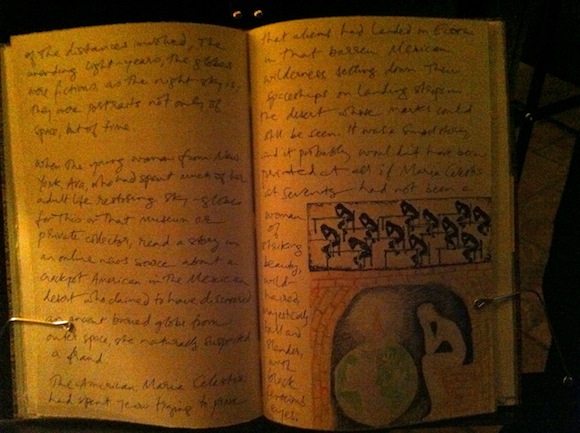 of the distances involved, the
unending light-years, the globes
were fictions, as the night sky is,
they were portraits not only of
space, but of time.
When the young woman from New
York, Ava, who had spent much of her
adult life restoring sky-globes
for this or that museum or
private collector, read a story in
an online news source about a
crackpot American in the Mexican
desert who claimed to have discovered
an ancient buried globe from
outer space, she naturally suspected
a fraud.
The American Maria Celeste
had spent years trying to prove
that aliens had landed on Earth
in that barren Mexican
wilderness setting down their
spaceships on landing strips in
the desert whose marks could
still be seen. It was a small story
and it probably wouldn't have been
printed at all if Maria Celeste
at seventy had not been a
woman
of
striking
beauty,
wild-
haired,
majestically
tall and
slender,
with
black
eyes.